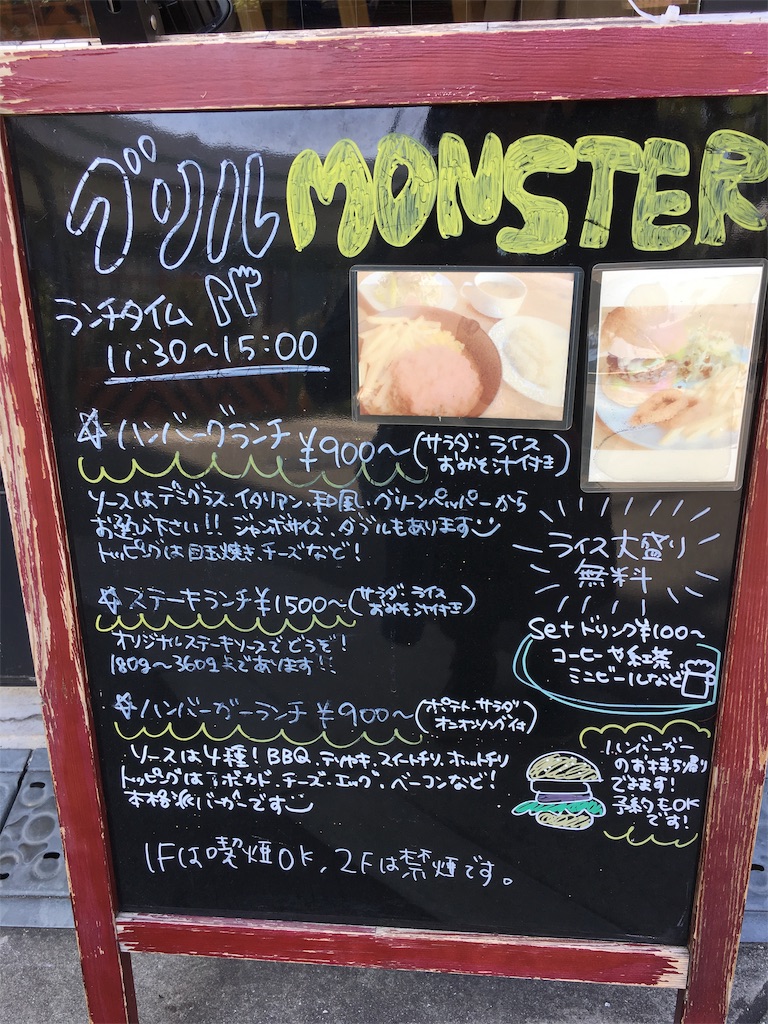 グリル MONSTER
ランチタイム
11:30～15:00
☆ハンバーグランチ ¥900～(サラダ ライス おみそ汁付き)
ソースはデミグラス、イタリアン、和風、グリーンペッパーから
お選び下さい!! ジャンボサイズ、ダブルもあります
トッピングは目玉焼き、チーズなど!
ライス大盛り
無料
☆ステーキランチ ¥1500～(サラダ ライス おみそ汁付き)
オリジナルステーキソースでどうぞ!
180g～360gまであります!!
Set ドリンク¥100～
コーヒーや紅茶、
ミニビールなど
☆ハンバーガーランチ ¥900～(ポテト、サラダ オニオンリング付)
ソースは4種! BBQ、テリヤキ、スイートチリ、ホットチリ
トッピングはアボカド、チーズ、エッグ、ベーコンなど!
本格派バーガーです
ハンバーガー
のお持ち帰り
できます!
予約もOK
です!
1Fは喫煙OK、2Fは禁煙です。